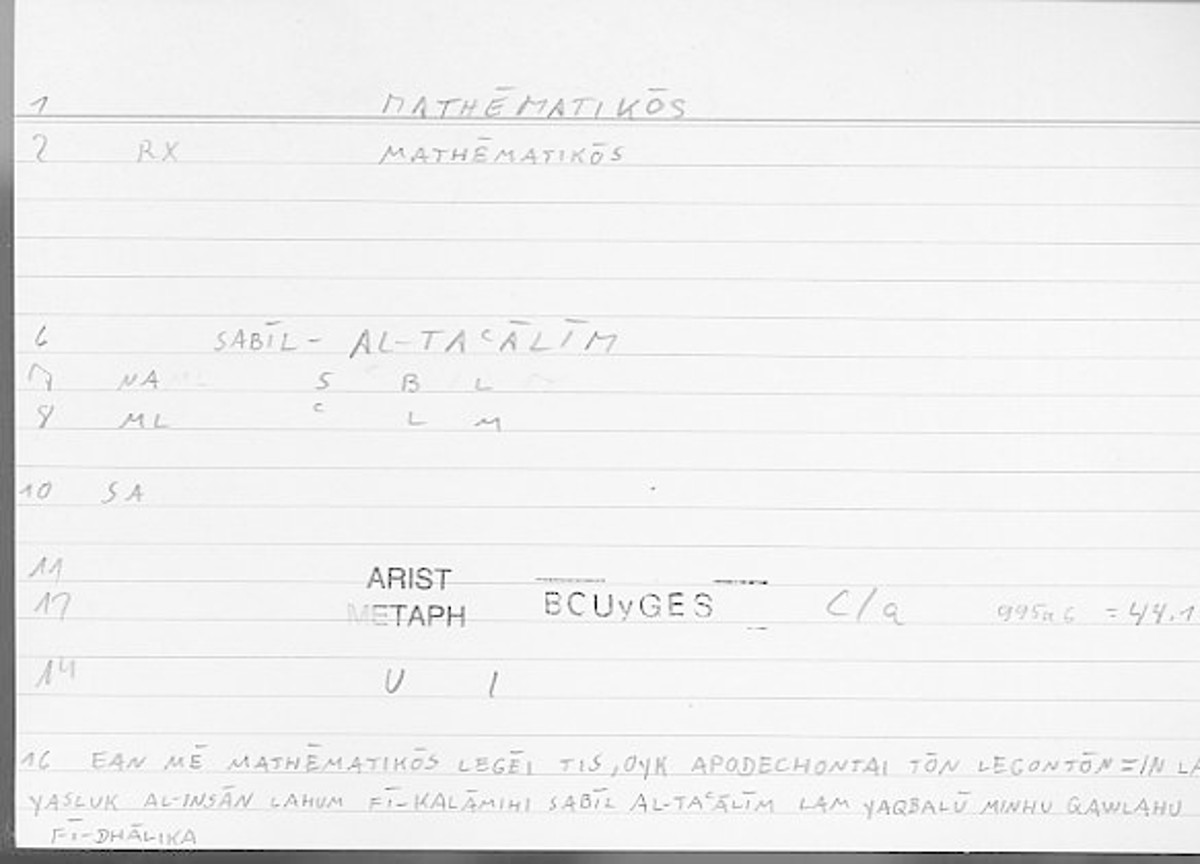 1 MATHĒMATIKŌS
2 RX MATHĒMATIKŌS
6 SABĪL- AL-TAᶜĀLĪM
7 NA S B L
8 ML ᶜ L M
10 SA
11 ARIST
17 METAPH BCUyGES C/a 995a6 = 44.1
14 U I
16 EAN MĒ MATHĒMATIKŌS LEGĒI TIS, OYK APODECHONTAI TŌN LEGONTŌN = IN LA
YASLUK AL-INSĀN LAHUM FĪ-KALĀMIHI SABĪL AL-TAᶜĀLĪM LAM YAQBALŪ MINHU QAWLAHU
FĪ-DHĀLIKA